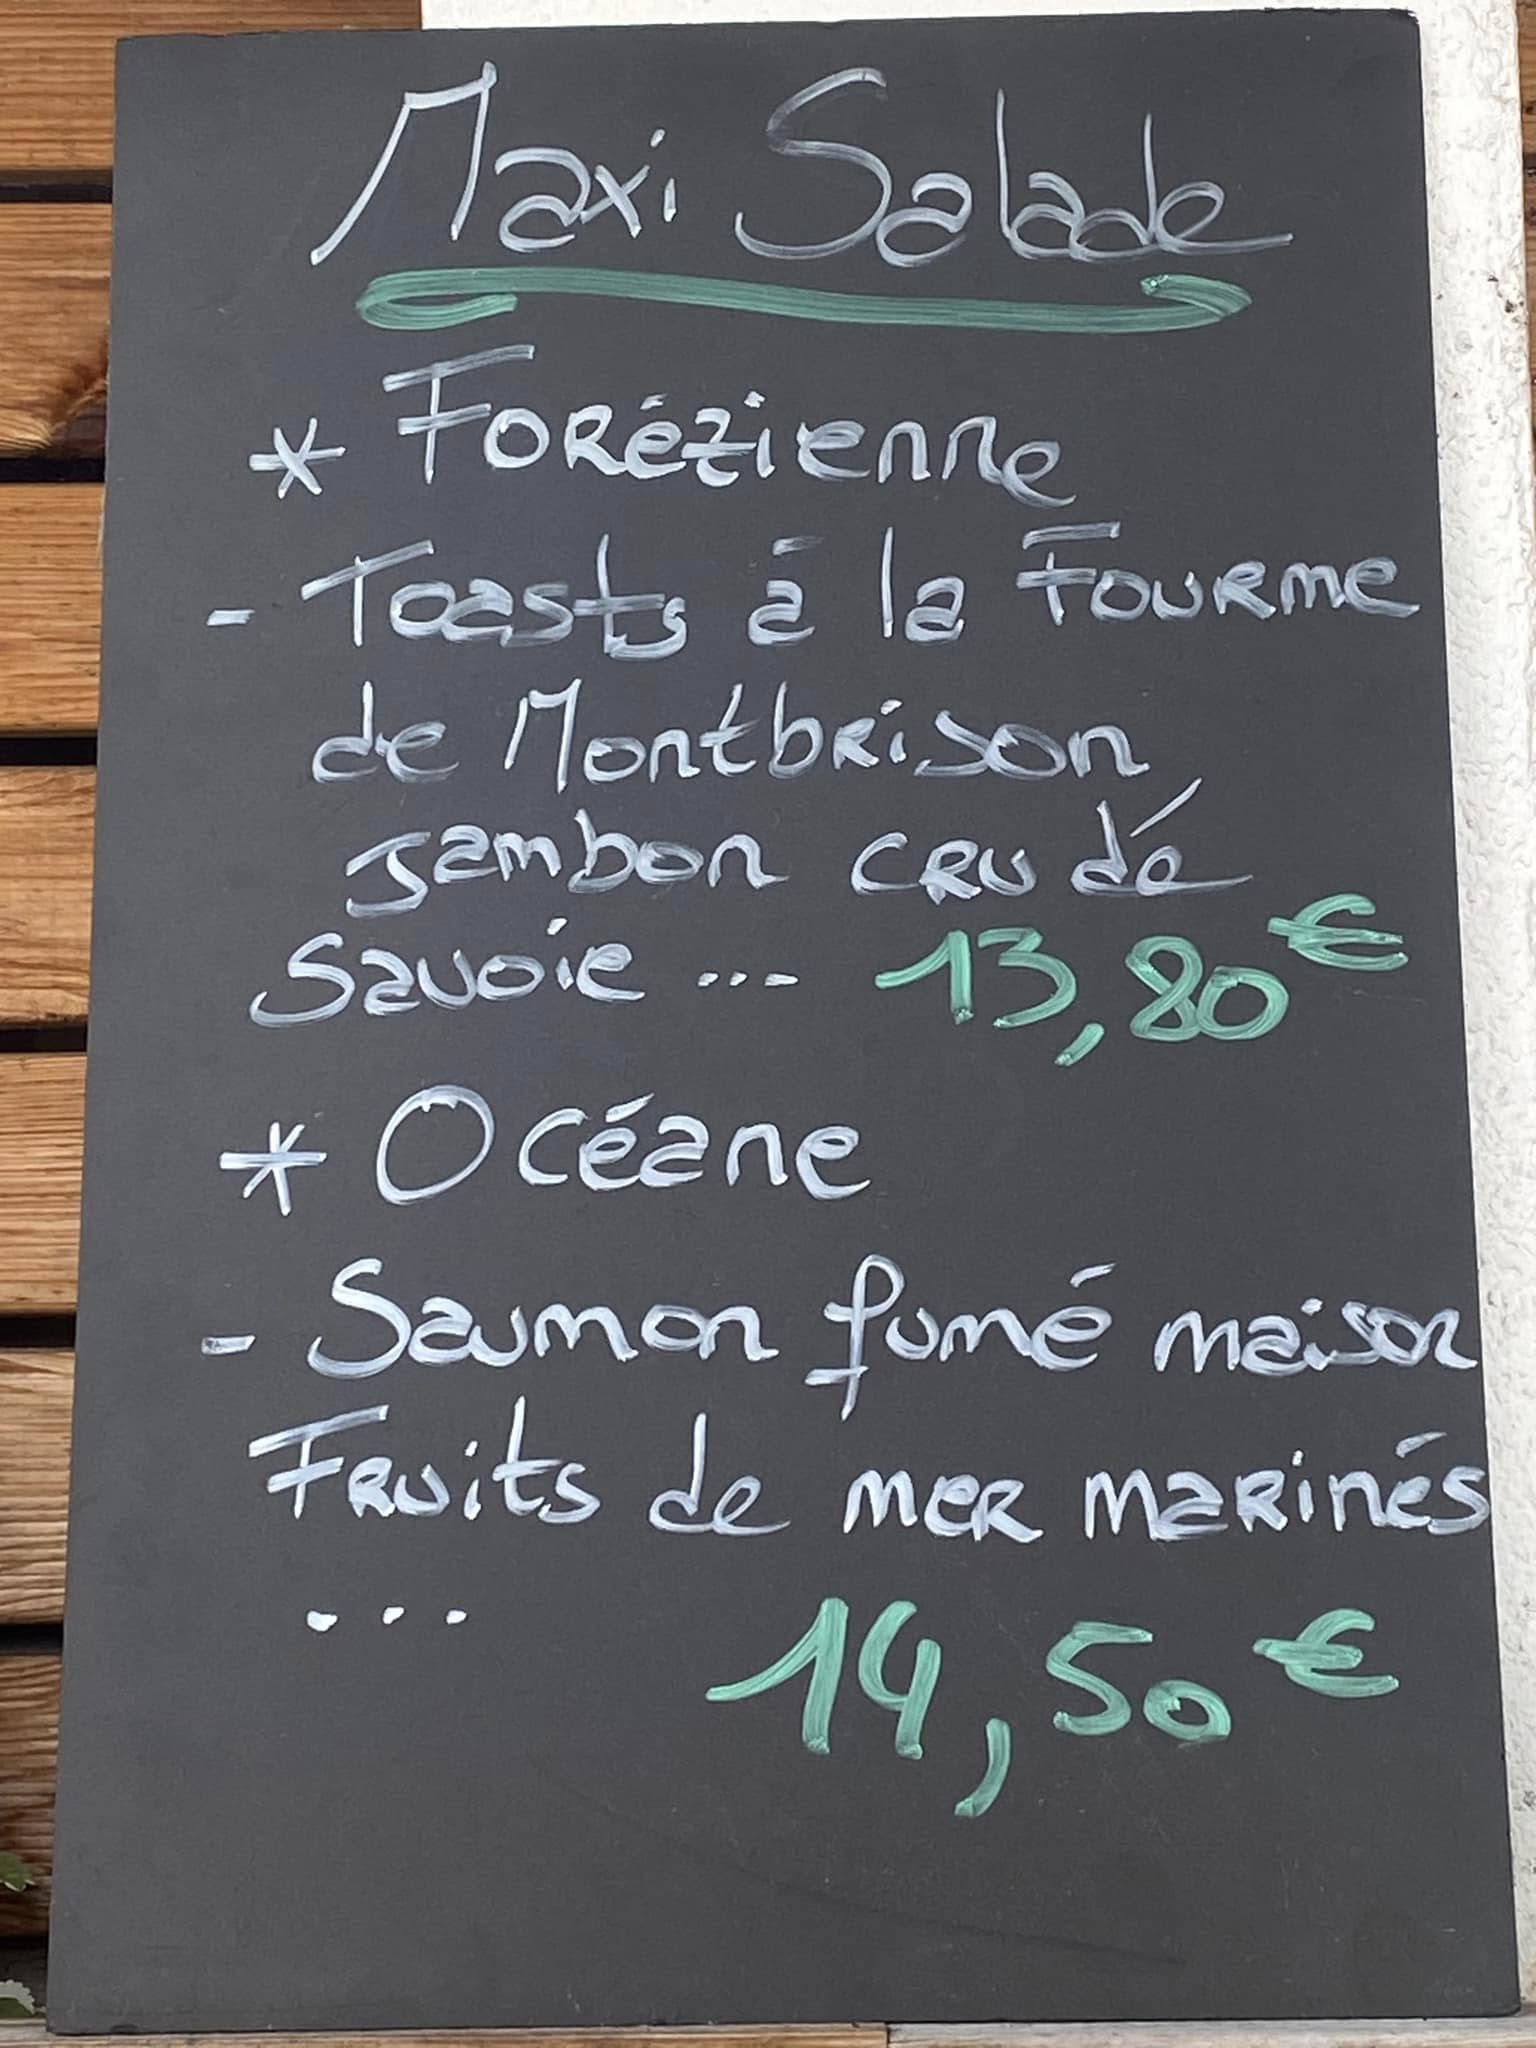 Maxi Salade
* Forézienne
- Toasts à la Fourme
de Montbrison,
jambon cru dé
Savoie ... 13,80€
* Océane
- Saumon fumé maison
Fruits de mer marinés
... 14,50€